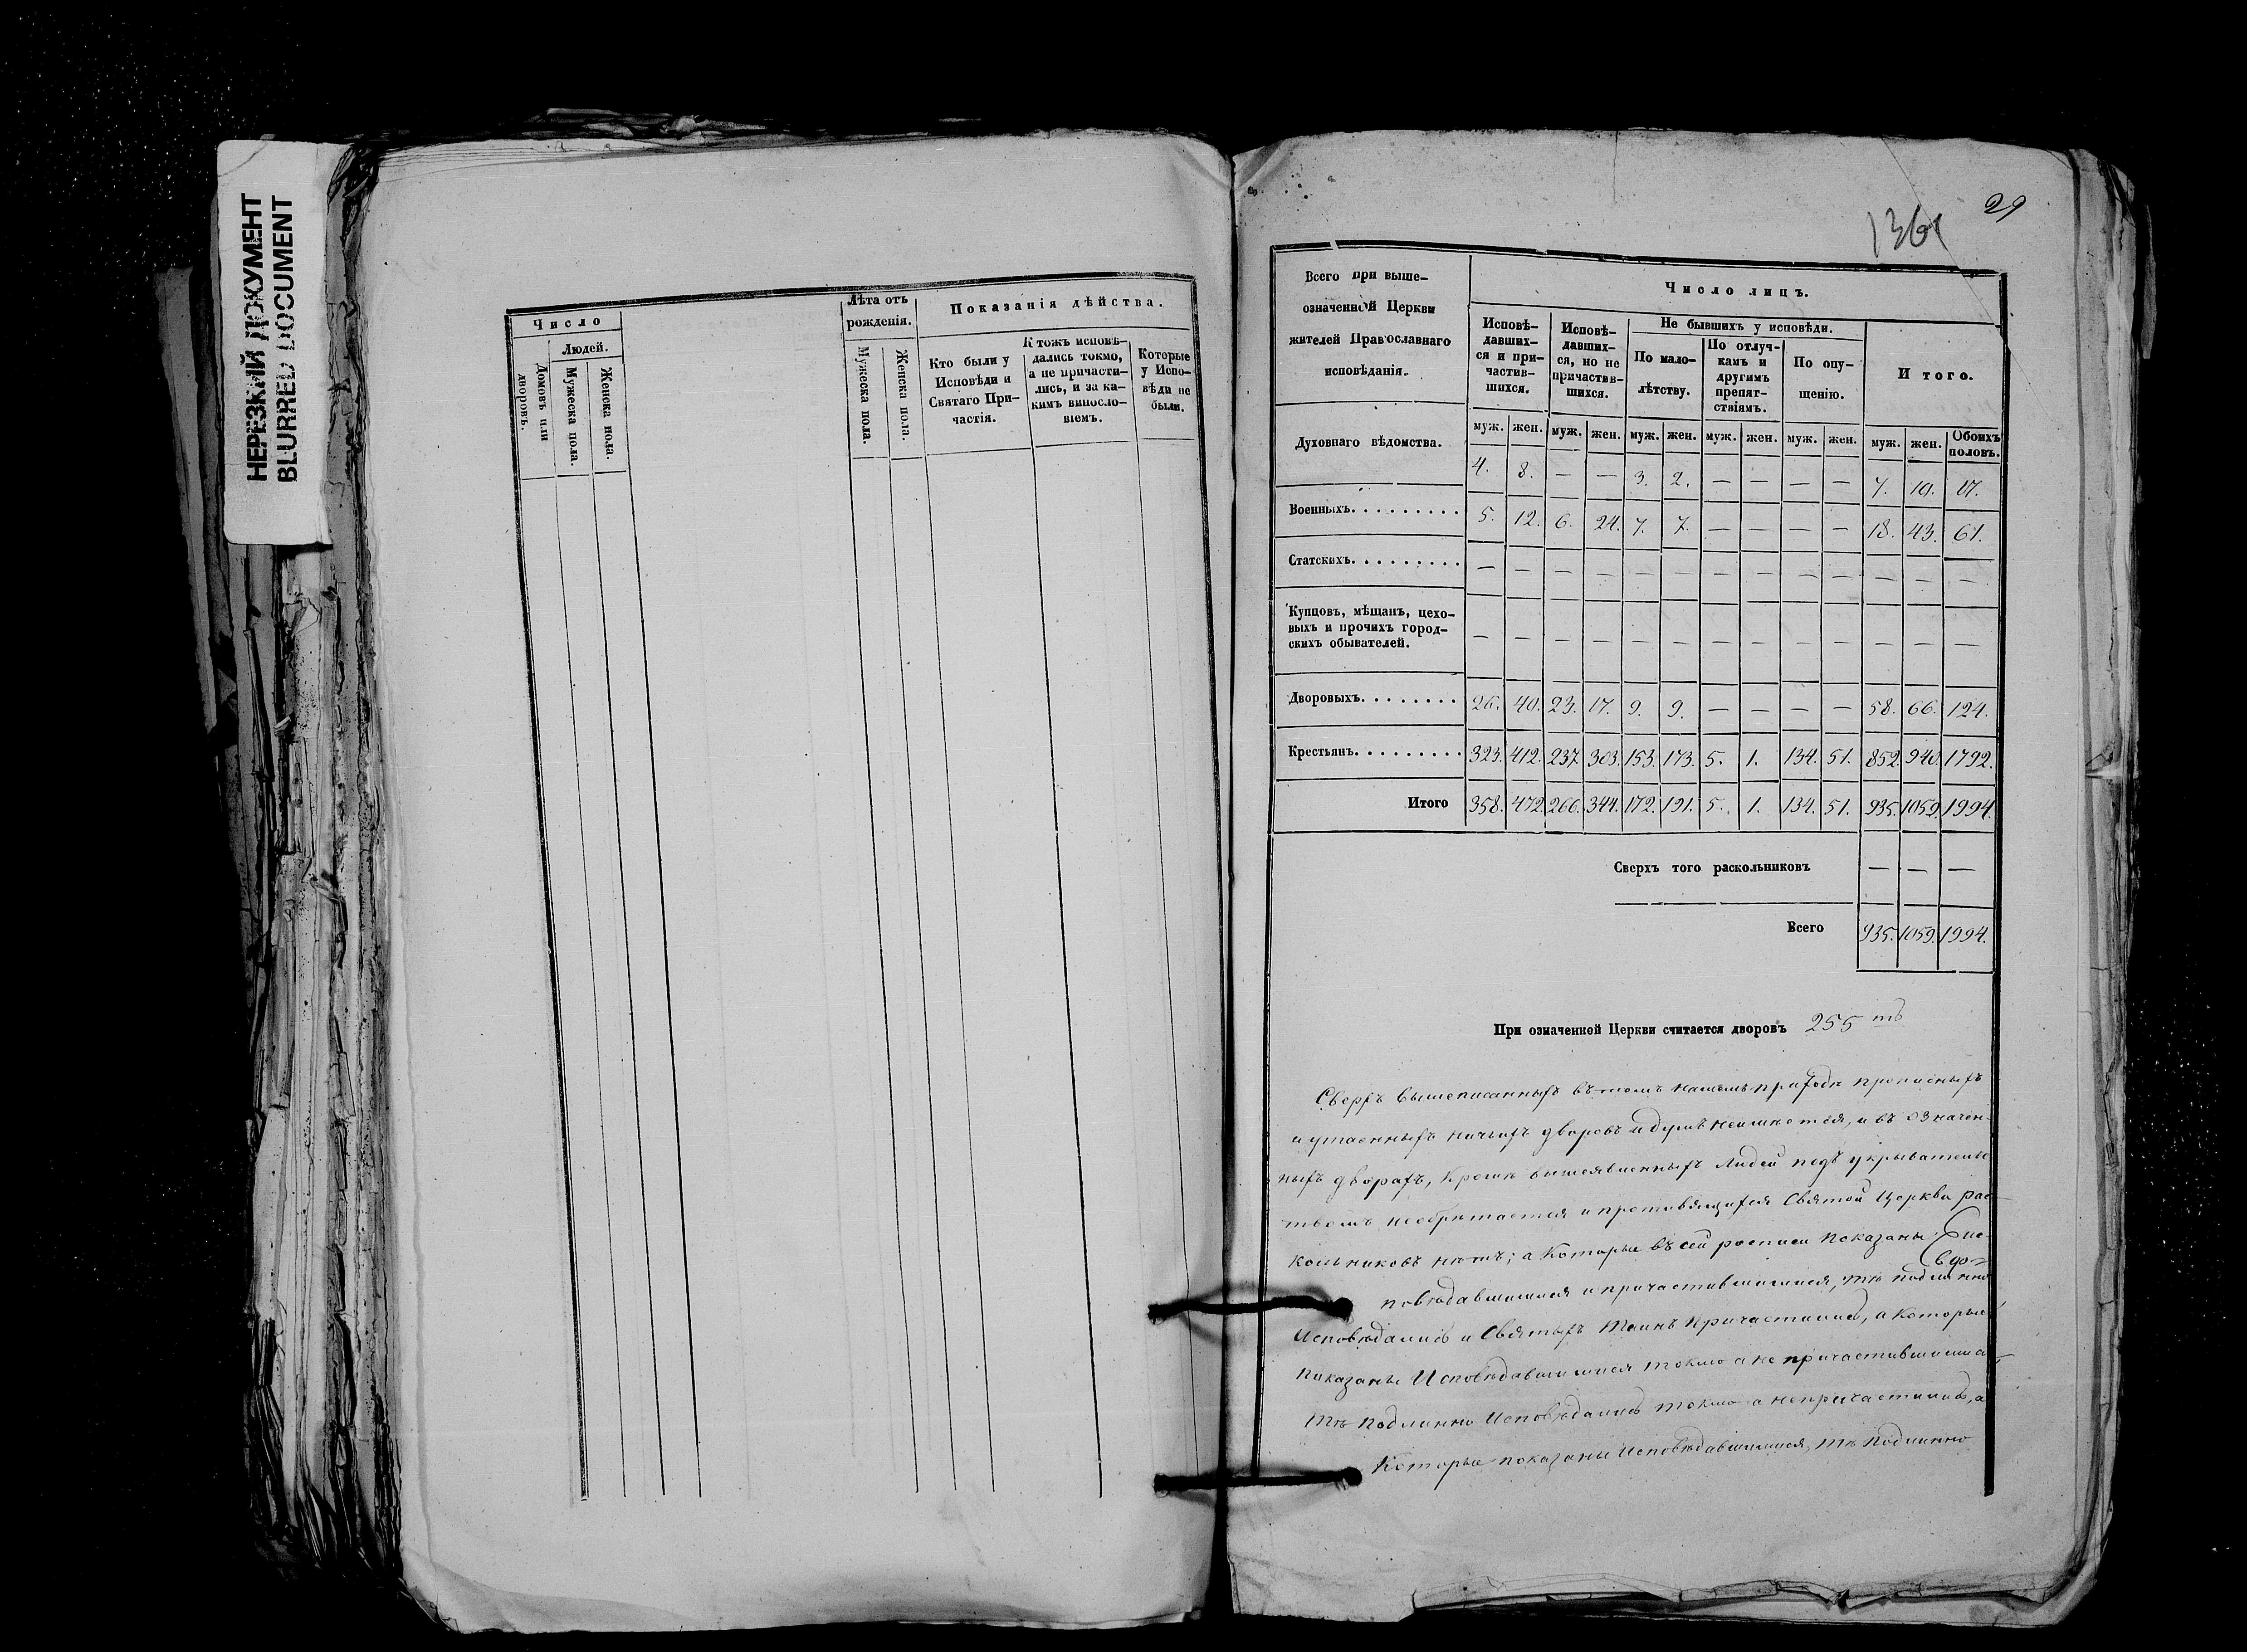 НЕРЕЗКИЙ ДОКУМЕНТ
BLURRED DOCUMENT
Число
Людей.
Домовъ или дворовъ.
Мужеска пола.
Женска пола.
Лѣта отъ рожденія.
Мужеска пола.
Женска пола.
Показанія дѣйства.
Кто были у
Исповѣди и
Святаго При-
частія.
Ктожъ исповѣ-
дались токмо,
а не причасти-
лись, и за ка-
кимъ виносло-
віемъ.
Которые
у Испо-
вѣди не
были.
29
Всего при выше-
означенной Церкви
жителей Православнаго
исповѣданія.
Число лицъ.
Исповѣ-
давших-
ся и при-
частив-
шихся.
Исповѣ-
давших-
ся, но не
причастив-
шихся.
Не бывшихъ у исповѣди.
По мало-
лѣтству.
По отлуч-
камъ и
другимъ
препят-
ствіямъ.
По опу-
щенію.
Итого.
муж. жен. муж. жен. муж. жен. муж. жен. муж. жен. муж. жен. Обоихъ половъ.
Духовнаго вѣдомства. 4. 8. — — 3. 2. — — — — 7. 10. 17.
Военныхъ......... 5. 12. 6. 24. 7. 7. — — — — 18. 43. 61.
Статскихъ......... — — — — — — — — — — — — —
Купцовъ, мѣщанъ, цехо-
выхъ и прочихъ город-
скихъ обывателей. — — — — — — — — — — — — —
Дворовыхъ........ 26. 40. 23. 17. 9. 9. — — — — 58. 66. 124.
Крестьянъ......... 323. 412. 237. 303. 153. 173. 5. 1. 134. 51. 852. 940. 1792.
Итого 358. 472. 266. 344. 172. 191. 5. 1. 134. 51. 935. 1059. 1994.
Сверхъ того раскольниковъ — — —
Всего 935. 1059. 1994.
При означенной Церкви считается дворовъ 255 тъ
Сверхъ вышеписанныхъ въ томъ нашемъ приходѣ прописныхъ
и утаенныхъ ничьихъ дворовъ и душъ неимѣется, и въ означен-
ныхъ дворахъ, кромѣ вышеявленныхъ людей подъ укрыватель
твомъ необрѣтается и противящихся Святой Церкви рас-
кольниковъ нѣтъ; а которые въ сей росписи показаны Ис-
повѣдавшимися и причастившимися, тѣ подлинно
Исповѣдались и Святыхъ Таинъ Причастились, а которые
показаны Исповѣдавшимися токмо а не причастившимися
тѣ подлинно Исповѣдались токмо а непричастились, а
Которые показаны Исповѣдавшимися, тѣ подлинно